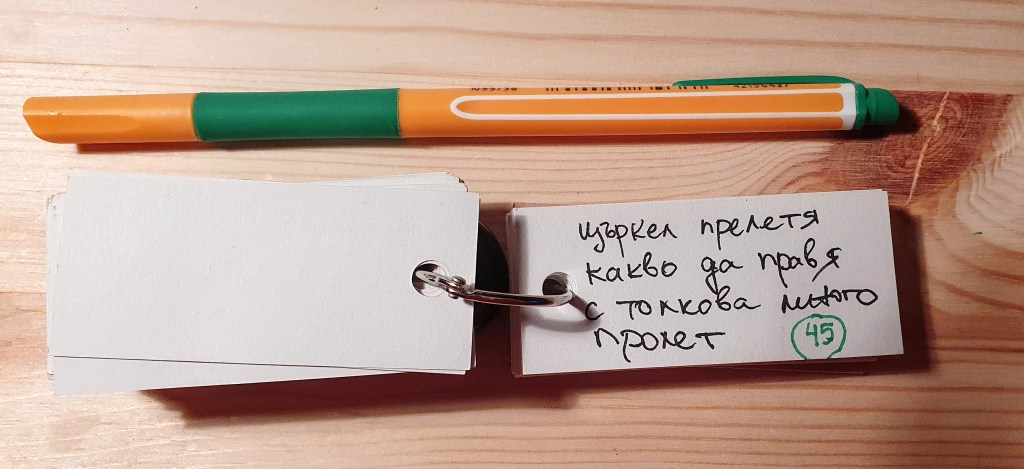 щъркел прелетя
какво да правя
с толкова много
пролет
45